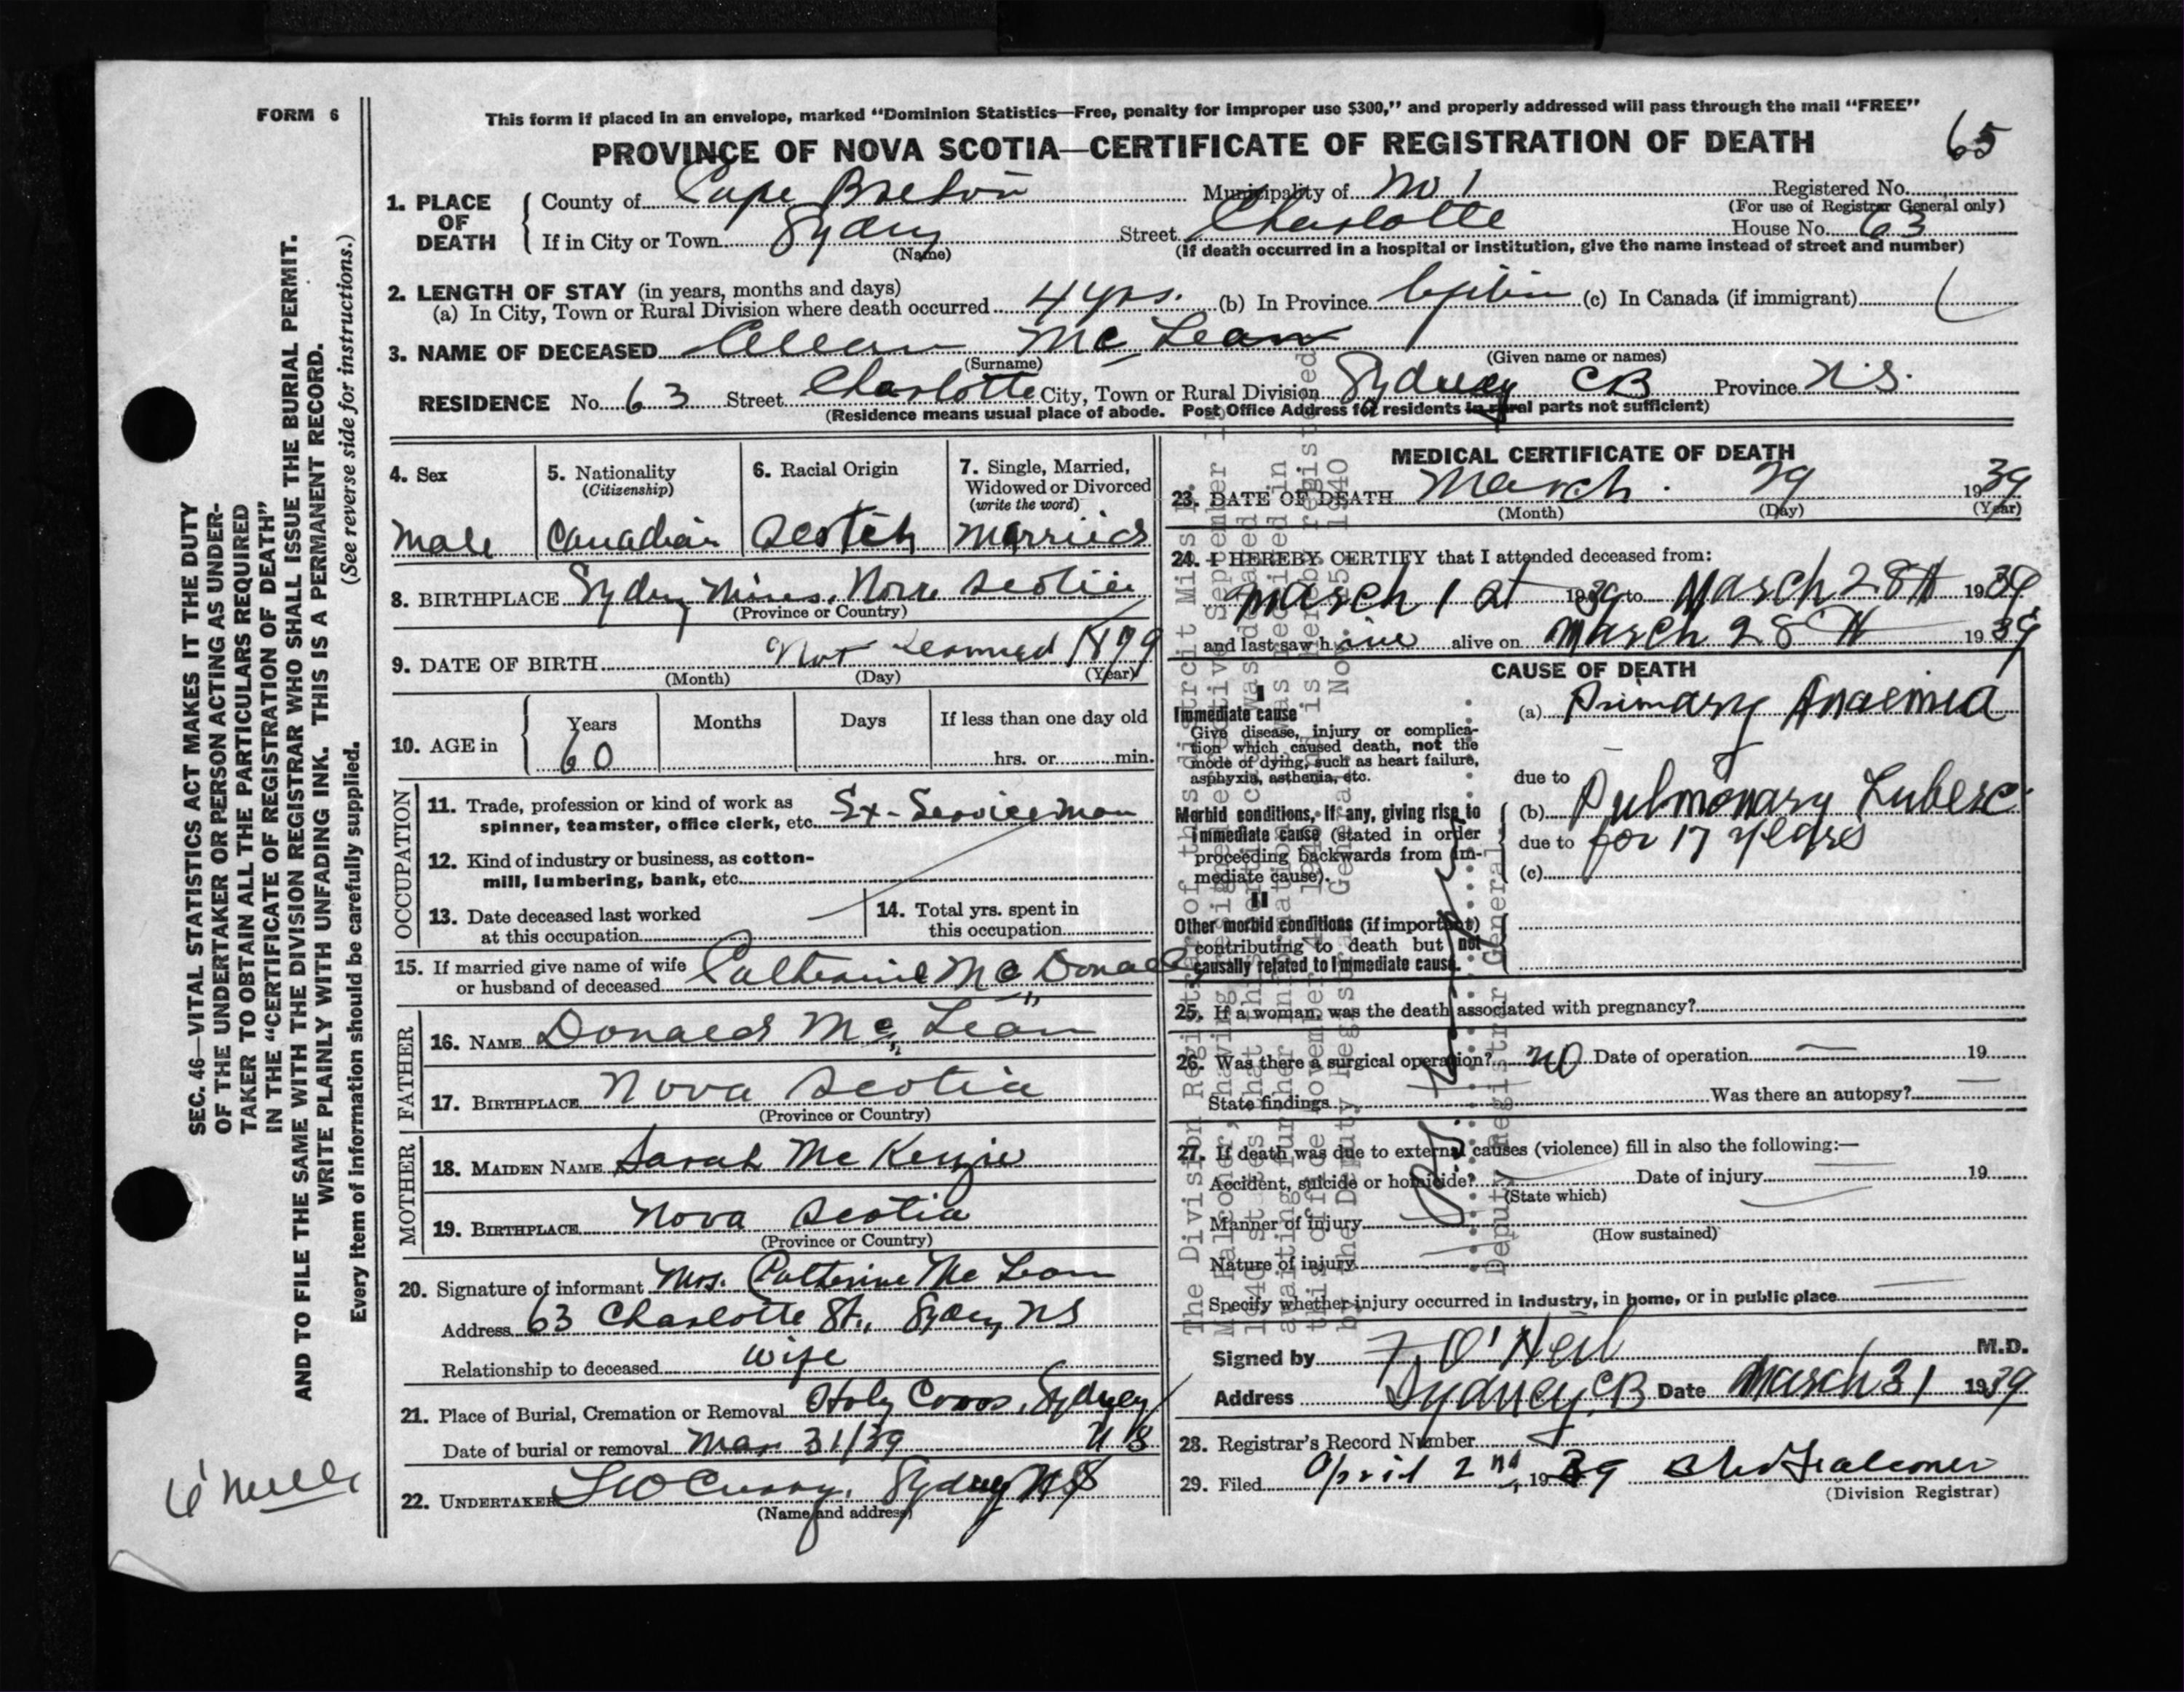 FORM 6
This form if placed in an envelope, marked "Dominion Statistics—Free, penalty for improper use $300," and properly addressed will pass through the mail "FREE"
PROVINCE OF NOVA SCOTIA—CERTIFICATE OF REGISTRATION OF DEATH
65
1. PLACE OF DEATH
County of Cape Breton Municipality of No 1 Registered No.
(For use of Registrar General only)
If in City or Town Sydney Street Charlotte House No. 63
(Name) (If death occurred in a hospital or institution, give the name instead of street and number)
2. LENGTH OF STAY (in years, months and days)
(a) In City, Town or Rural Division where death occurred 4 yrs. (b) In Province (c) In Canada (if immigrant)
3. NAME OF DECEASED Mc Lean
(Surname) (Given name or names)
RESIDENCE No. 63 Street Charlotte City, Town or Rural Division Sydney CB Province N.S.
(Residence means usual place of abode. Post Office Address for residents in rural parts not sufficient)
4. Sex
Male
5. Nationality
(Citizenship)
Canadian
6. Racial Origin
Scotch
7. Single, Married,
Widowed or Divorced
(write the word)
Married
8. BIRTHPLACE Sydney Mines, Nova Scotia
(Province or Country)
9. DATE OF BIRTH Not 1879
(Month) (Day) (Year)
10. AGE in
Years Months Days If less than one day old
60 hrs. or min.
OCCUPATION
11. Trade, profession or kind of work as
spinner, teamster, office clerk, etc. Ex-Service man
12. Kind of industry or business, as cotton-
mill, lumbering, bank, etc.
13. Date deceased last worked
at this occupation
14. Total yrs. spent in
this occupation
15. If married give name of wife
or husband of deceased Catherine Mc Donald
FATHER
16. NAME Donald Mc Lean
17. BIRTHPLACE Nova Scotia
(Province or Country)
MOTHER
18. MAIDEN NAME Sarah Mc Kenzie
19. BIRTHPLACE Nova Scotia
(Province or Country)
20. Signature of informant Mrs. Catherine Mc Lean
Address 63 Charlotte St., Sydney NS
Relationship to deceased Wife
21. Place of Burial, Cremation or Removal Holy Cross, Sydney
NS
Date of burial or removal Mar 31/39
22. UNDERTAKER Curry, Sydney NS
(Name and address)
MEDICAL CERTIFICATE OF DEATH
23. DATE OF DEATH March 29 1939
(Month) (Day) (Year)
24. I HEREBY CERTIFY that I attended deceased from:
March 1st 1939 to March 28th 1939
and last saw h alive on March 28th 1939
CAUSE OF DEATH
I
Immediate cause
Give disease, injury or complica-
tion which caused death, not the
mode of dying, such as heart failure,
asphyxia, asthenia, etc.
(a) Primary Anaemia
due to
Morbid conditions, if any, giving rise to
immediate cause (stated in order
proceeding backwards from im-
mediate cause).
(b) Pulmonary Tuberc.
due to for 17 years
(c)
II
Other morbid conditions (if important)
contributing to death but not
causally related to immediate cause.
25. If a woman, was the death associated with pregnancy?
26. Was there a surgical operation? no Date of operation 19
State findings Was there an autopsy?
27. If death was due to external causes (violence) fill in also the following:—
Accident, suicide or homicide? Date of injury 19
(State which)
Manner of injury
(How sustained)
Nature of injury
Specify whether injury occurred in industry, in home, or in public place
Signed by F. O'Neil M.D.
Address Sydney, CB Date March 31 1939
28. Registrar's Record Number
29. Filed April 2nd, 1939 Falconer
(Division Registrar)
SEC. 46—VITAL STATISTICS ACT MAKES IT THE DUTY
OF THE UNDERTAKER OR PERSON ACTING AS UNDER-
TAKER TO OBTAIN ALL THE PARTICULARS REQUIRED
IN THE "CERTIFICATE OF REGISTRATION OF DEATH"
AND TO FILE THE SAME WITH THE DIVISION REGISTRAR WHO SHALL ISSUE THE BURIAL PERMIT.
WRITE PLAINLY WITH UNFADING INK. THIS IS A PERMANENT RECORD.
(See reverse side for instructions.)
Every item of information should be carefully supplied.
The Division Registrar of this district Miss
Deputy Registrar General